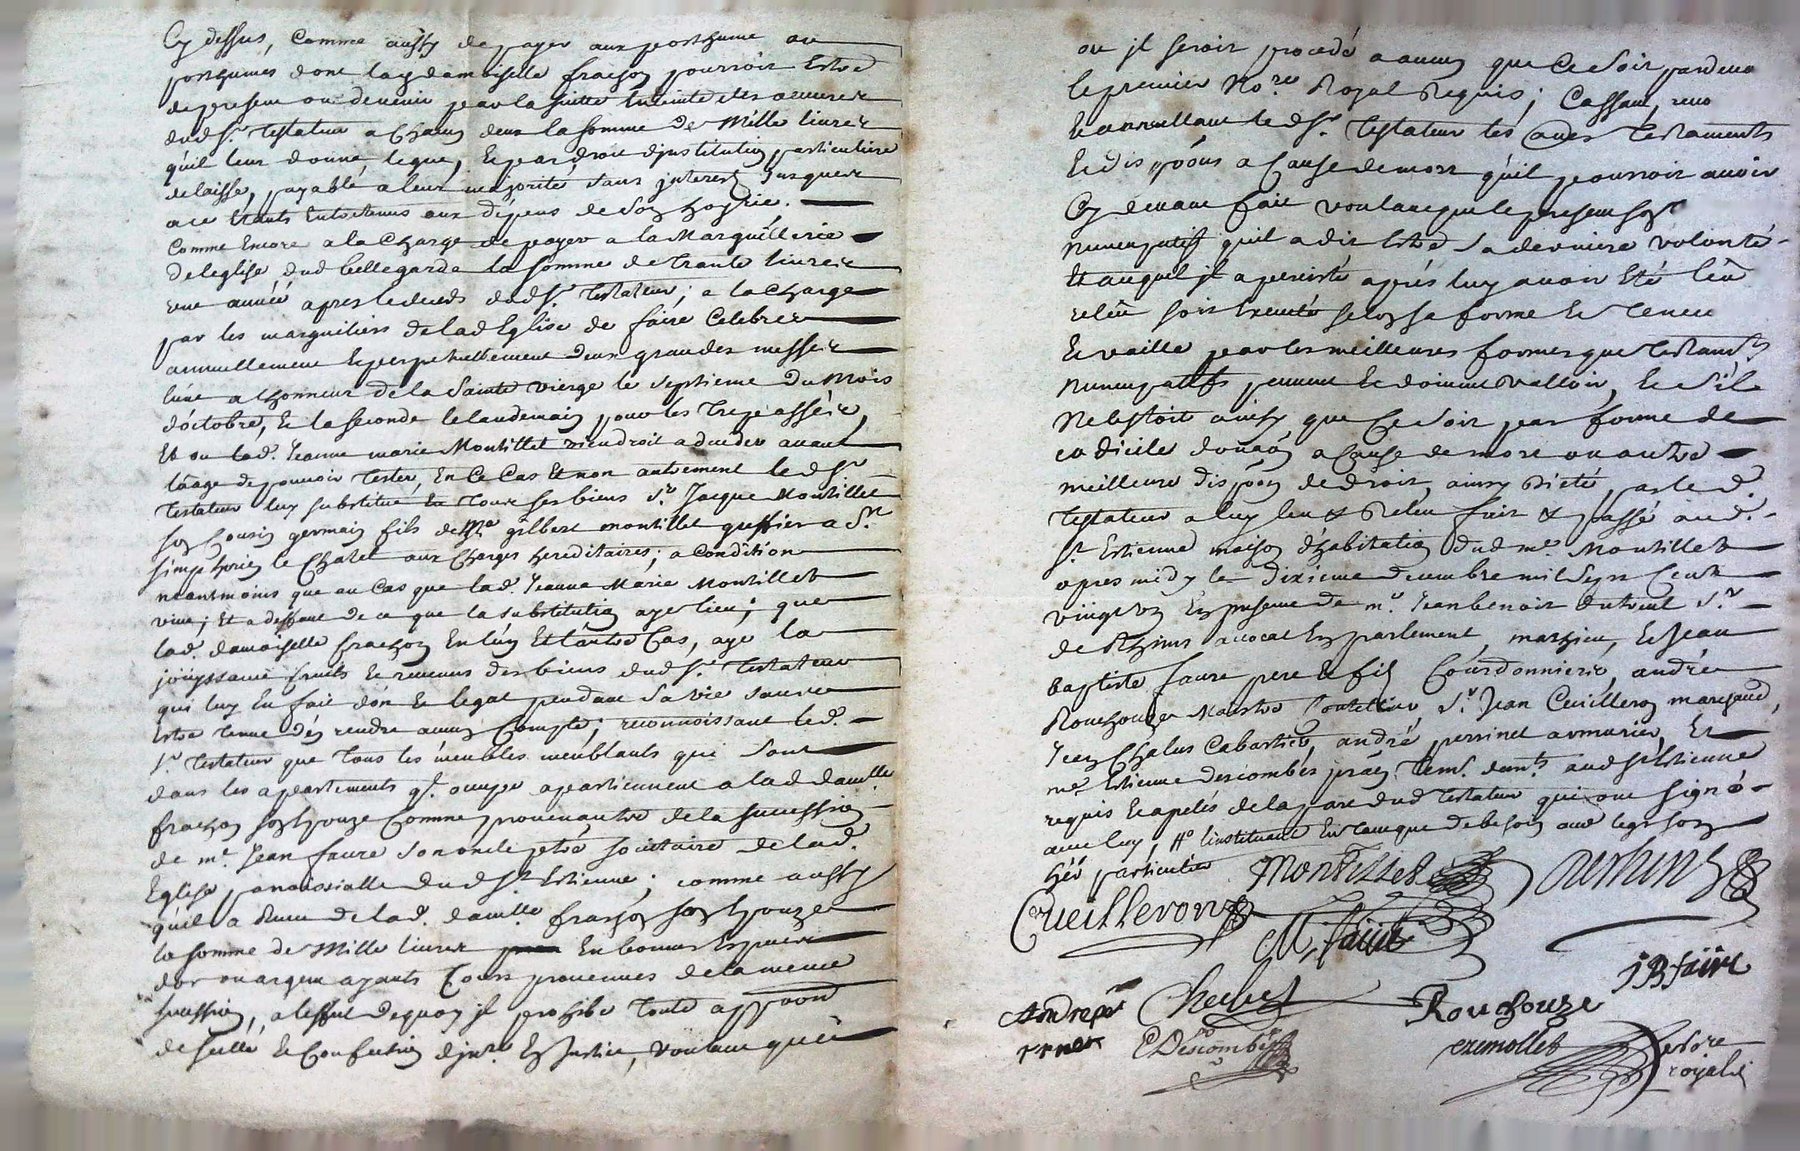 Cy dessus, Comme aussy de payer aux posthume ou
posthumes dont lad damoiselle frachon pourroit Estre
de present ou devenir par la suitte Enceinte des oeuvres
dud sr. Testateur a chacun deux la somme de Mille livres
qu'il leur donne, legue, Et par droit dinstitution particuliere
delaisse, payable a leur majorité sans jnterest jusques
a ce Etants Entretenus aux dépens de son hoyrie.
Comme Encore a la Charge de payer a la Marguillerie
de leglise dud bellegarde la somme de Trante livres
une année apres le deceds dud sr. Testateur; a la Charge
par les marguiliers de lad Eglise de faire Celebrer
annuellement Et perpetuellement deux grandes messes
lune a lhonneur de la Sainte vierge le septieme du Mois
doctobre, Et la seconde le landemain pour les Trepassés,
Et ou lad. Jeanne marie Montillet viendroit a deceder avant
láage de pouvoir Tester, En Ce Cas Et non autrement led sr.
Testateur luy substitue En Tous ses biens sr. Jacque Montillet
son Cousin germain fils de Me gilbert montillet greffier a St
simphorien le Chatel aux Charges hereditaires; a Condition
neantmoins que au Cas que lad. Jeanne Marie Montillet
vive; Et a deffaut de ce que la substitution aye lieu; que
lad. damoiselle frachon En lún Et láutre Cas, aye la
joüyssance fruits Et revenus des biens dud sr. Testateur
qui luy En fait don Et legat pendant sa vie sans
Estre tenue dén rendre aucun Compte; reconnoissant led.
sr. Testateur que Tous les meubles meublants qui sont
dans les apartements ql. occupe apartiennent a lad daiselle
frachon son Epouze Comme provenantes de la succession
de me. Jean faure son oncle ptre societaire de lad.
Eglise parroissialle dud st. Estienne; comme aussy
qu'il a Receu de lad. daiselle frachon son Epouze
la somme de Mille livres En bonnes Especes
dor ou argent ayants Cours provenues de la meme
sucession, a leffet dequoy jl prohibe Toute apposon
de scellé, Et Confection djnre En Justice, voulant qués
ou jl seroit procedé a aucun que Ce soit pardevant
le premier Nore Royal Requis; Cassant, revo
Et annullant led sr. Testateur tes autres Testaments
Et disposons a Cause de mort qu'il pourroit avoir
Cy devant fait voulant que le present soit
nuncupatif qu'il a dit Estre sa derniere volonté
Et auquel jl a persisté aprés luy avoir Eté leû
releû soit Executé selon sa forme Et Teneur
Et vaille par les meilleures formes que Testaments
nuncupatifs peuvent Et doivent valloir, Et s'il
Ne lestoit ainsy que Ce soit par forme de
codicile donaon a Cause de mort ou autre
meilleure dispoon de droit, ainsy dicté par led.
Testateur a luy leu & Releu fait & passé aud.
st. Estienne maison dhabitation dud me. Montillet
apres midy le dixieme decembre mil sept Cent
vingt En presence de me. Jean benoit sr.
de avocat En parlement, mathieu, Et Jean
baptiste faure pere & fils Courdonniers, andré
Rouchouze Maistre sr. Jean Cueilleron marchand,
Jean Chalus Cabartier, andré perrinet armurier, Et
me. Estienne descombes pratn Temt. dants. aud st Estienne
requis Et apelés de la part dud Testateur qui ont signé
avec luy, linstituant En Tant que de besoin aud legs son
heér particulier
Montillet
Cueilleron
M. faure
JB faure
Andre per
rinet
Chalus
Rouchouze
EDescombes
ezemollet
Notre
royal